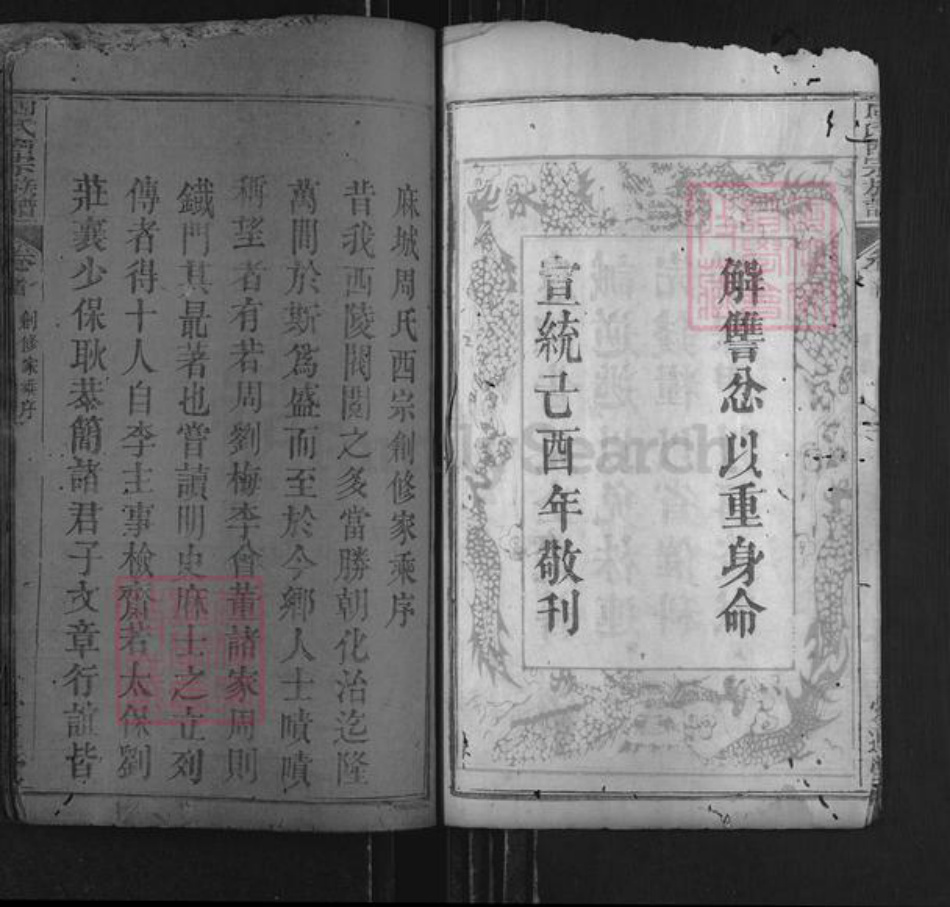 解讐忿以重身命
宣統己酉年敬刊
麻城周氏西宗創修家乘序
昔我西陵閥閱之多當勝朝化治迄隆
萬間於斯為盛而至於今鄉人士嘖嘖
稱望者有若周劉梅李會董諸家周則
鐵門其最著也嘗讀明史麻士之立列
傳者得十人自李主事檢齋若太保劉
莊襄少保耿恭簡諸君子文章行誼皆
周氏西宗族譜
卷首
創修家乘序
Family Search